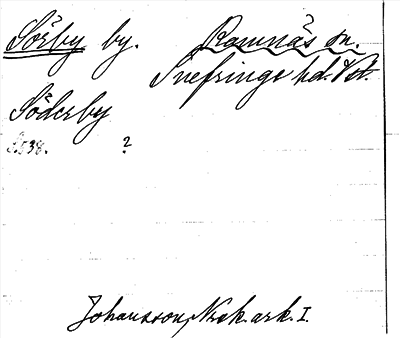 Sörby by. Ramnäs sn.
Snefringe hd. Vstm.
Söderby
S. 538. ?
Johansson, Nsek. ark. I.